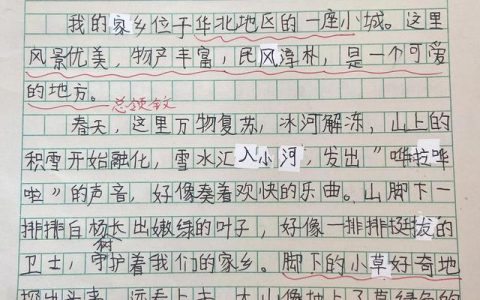 我的家乡位于华北地区的一座小城。这里
风景优美，物产丰富，民风淳朴，是一个可爱
的地方。
总领全文
春天，这里万物复苏，冰河解冻，山上的
积雪开始融化，雪水汇入小河，发出“哗拉哗
啦”的声音，好像奏着欢快的乐曲。山脚下一
排排白杨树长出嫩绿的叶子，好像一排排挺拔的
卫士，守护着我们的家乡。脚下的小草好奇地
探出头来，还看上去，大山像披上了草绿色的